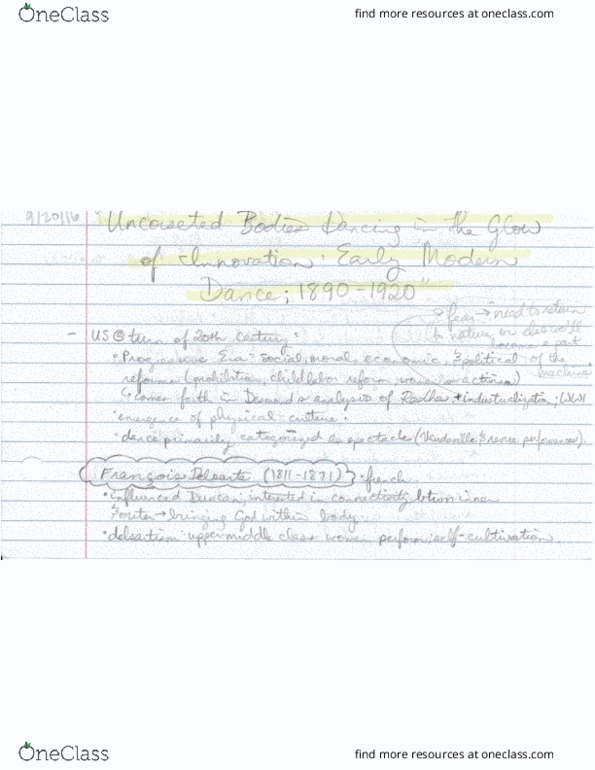 OneClass
find more resources at oneclass.com
9/20/16 "Uncorseted Bodies Dancing in the Glow
of Innovation: Early Modern
Dance; 1890-1920"
fear → need to return
to nature, or else we'll
become a part
of the
machine
- US @ turn of 20th century:
• Progressive Era: social, moral, economic, & political
reforms (prohibition, child labor reform, women
↳ comes forth in analysis of Radha, + industrialization, WWI
• emergence of physical culture:
• dance primarily categorized as spectacle (Vaudeville & revue performances)
François Delsarte (1811-1871) • french
• influenced Duncan, interested in connectivity btwn inner
& outer → bringing God within body.
• delsartism: upper middle class women perform self-cultivation
OneClass
find more resources at oneclass.com